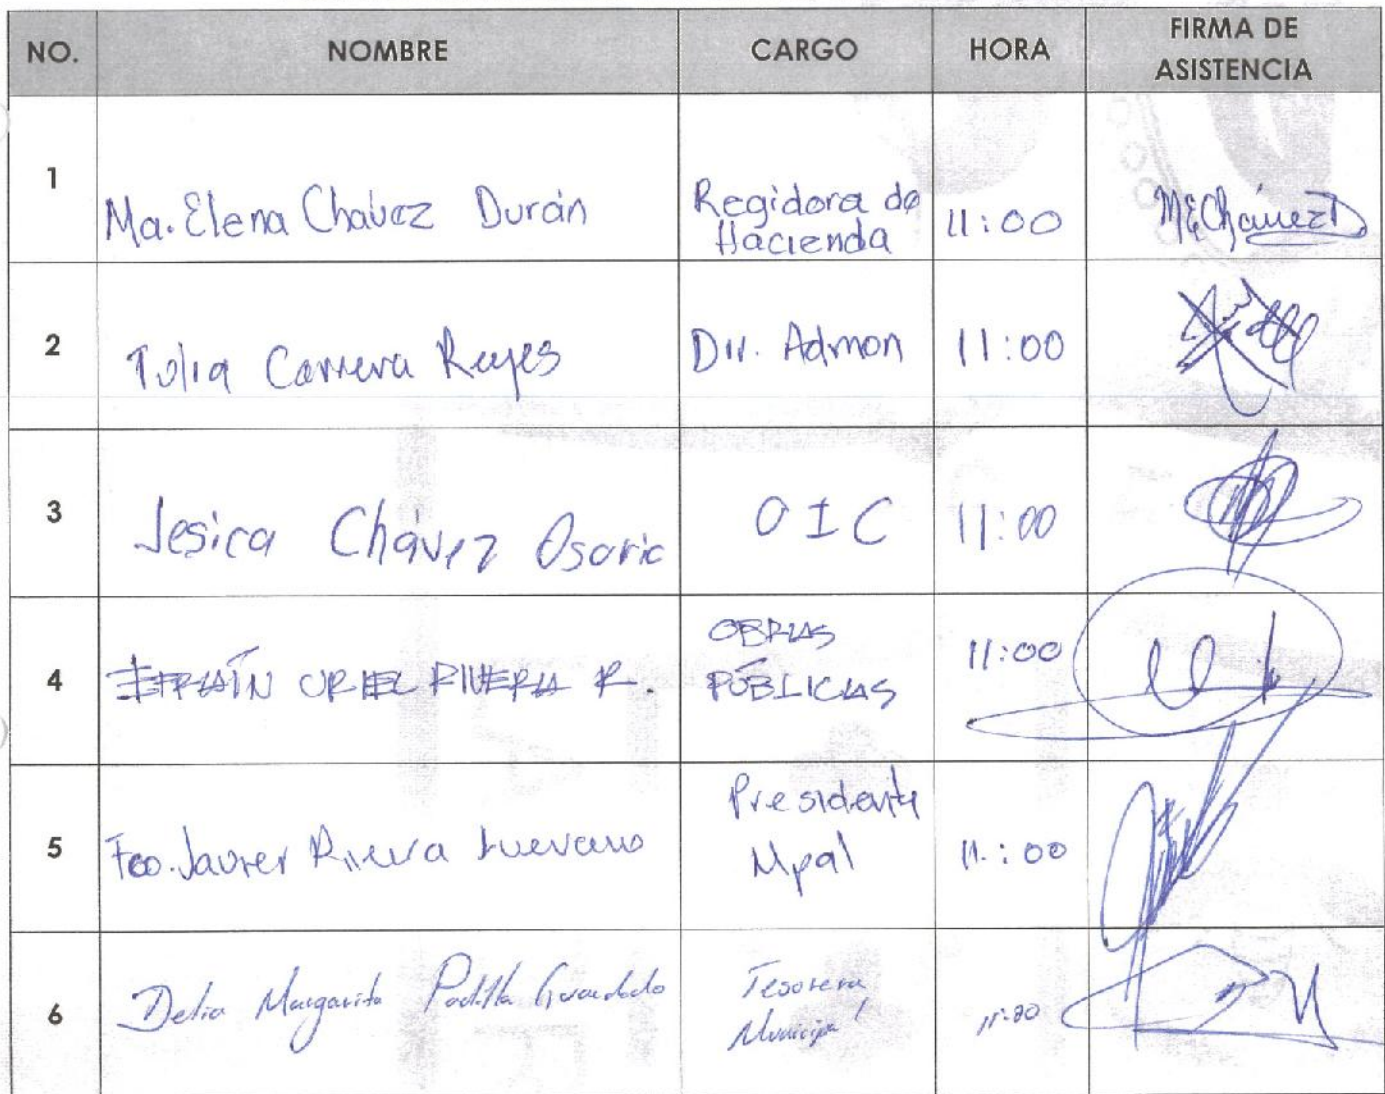 NO. NOMBRE CARGO HORA FIRMA DE ASISTENCIA
1 Ma. Elena Chavez Durán Regidora de Hacienda 11:00 MEChávezD
2 Tulia Carrera Reyes Dir. Admon 11:00
3 Jesica Chávez Osorio OIC 11:00
4 EFRAÍN URIEL RIVERA R. OBRAS PÚBLICAS 11:00
5 Fco. Javier Rivera Luevano Presidente Mpal 11:00
6 Delia Margarita Padilla Guardado Tesorera Municipal 11:00